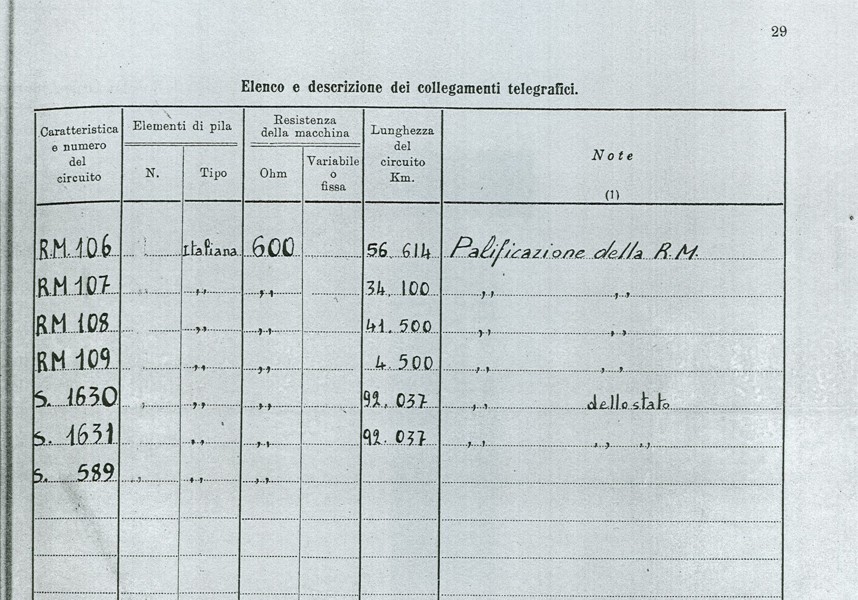 29
Elenco e descrizione dei collegamenti telegrafici.
Caratteristica e numero del circuito
Elementi di pila
N.
Tipo
Resistenza della macchina
Ohm
Variabile o fissa
Lunghezza del circuito Km.
Note
(1)
R.M. 106 Italiana 600 56. 614 Palificazione della R.M.
RM 107 ,, ,, 34. 100 ,, ,,
RM 108 ,, ,, 41. 500 ,, ,,
RM 109 ,, ,, 4. 500 ,, ,,
S. 1630 ,, ,, 92. 037 ,, dello stato
S. 1631 ,, ,, 92. 037 ,, ,, ,,
S. 589 ,, ,,